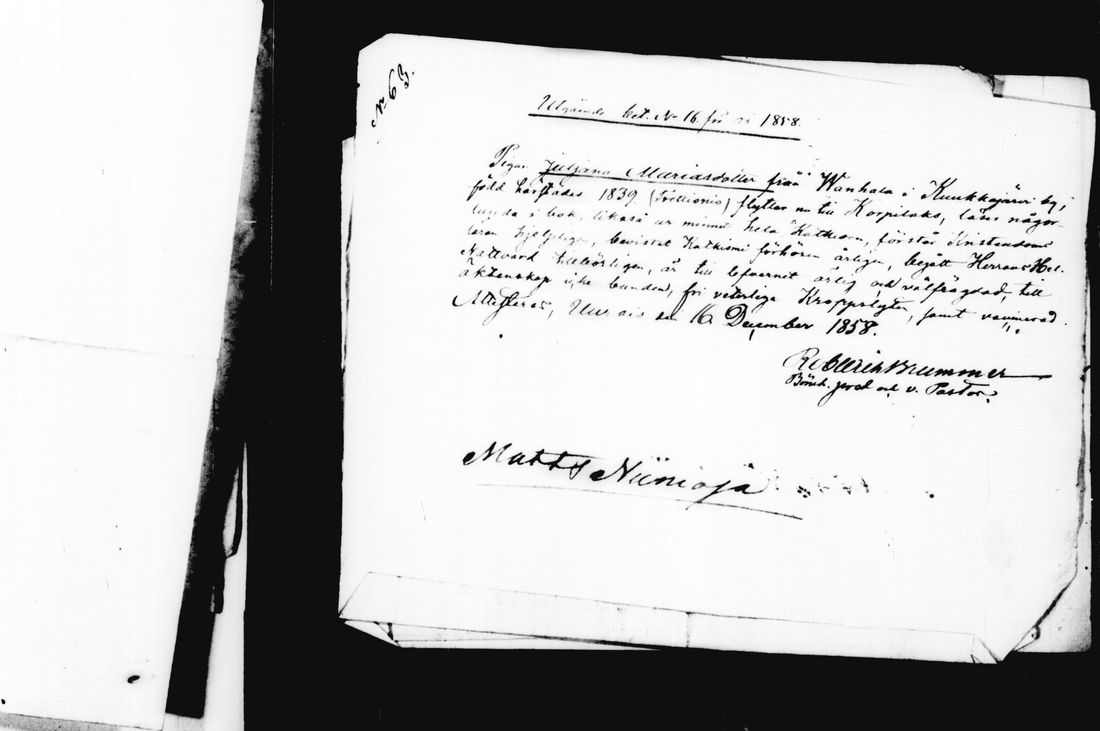 No 63.
Utgående bet. No 16 för år 1858.
Pigan Juljana Mariasdotter från Wanhala i Kuukkajärvi by,
född härstädes 1839 flyttar nu till Korpilaks, läser någor-
lunda i bok, likaså ur minnet hela Kathesen, förstår Kristendoms
läran hjelpligen, bevistat Kathismi förhören årligen, begått Herrans Hel.
Nattvard tillbörligen, är till lefvernet ärlig och välfrägdad, till
äktenskap icke bunden, fri veterliga Kroppslyten, samt vaccinerad.
Attesteras, den 16 December 1858.
Brummer
och v. Pastor.
Matts Niinioja